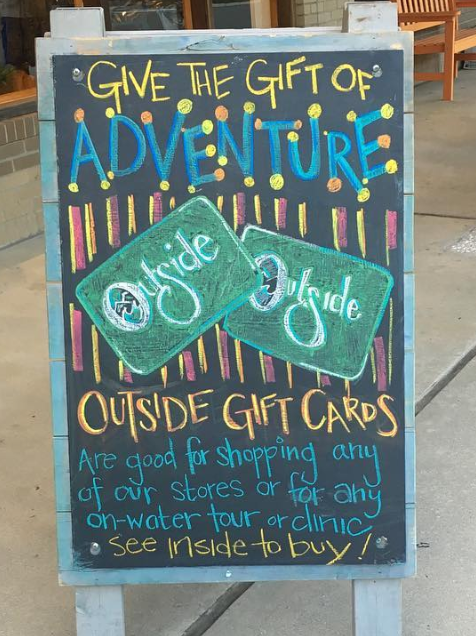 GIVE THE GIFT OF
ADVENTURE
Outside
Outside
OUTSIDE GIFT CARDS
Are good for shopping any
of our stores or for any
on-water tour or clinic
see inside to buy!